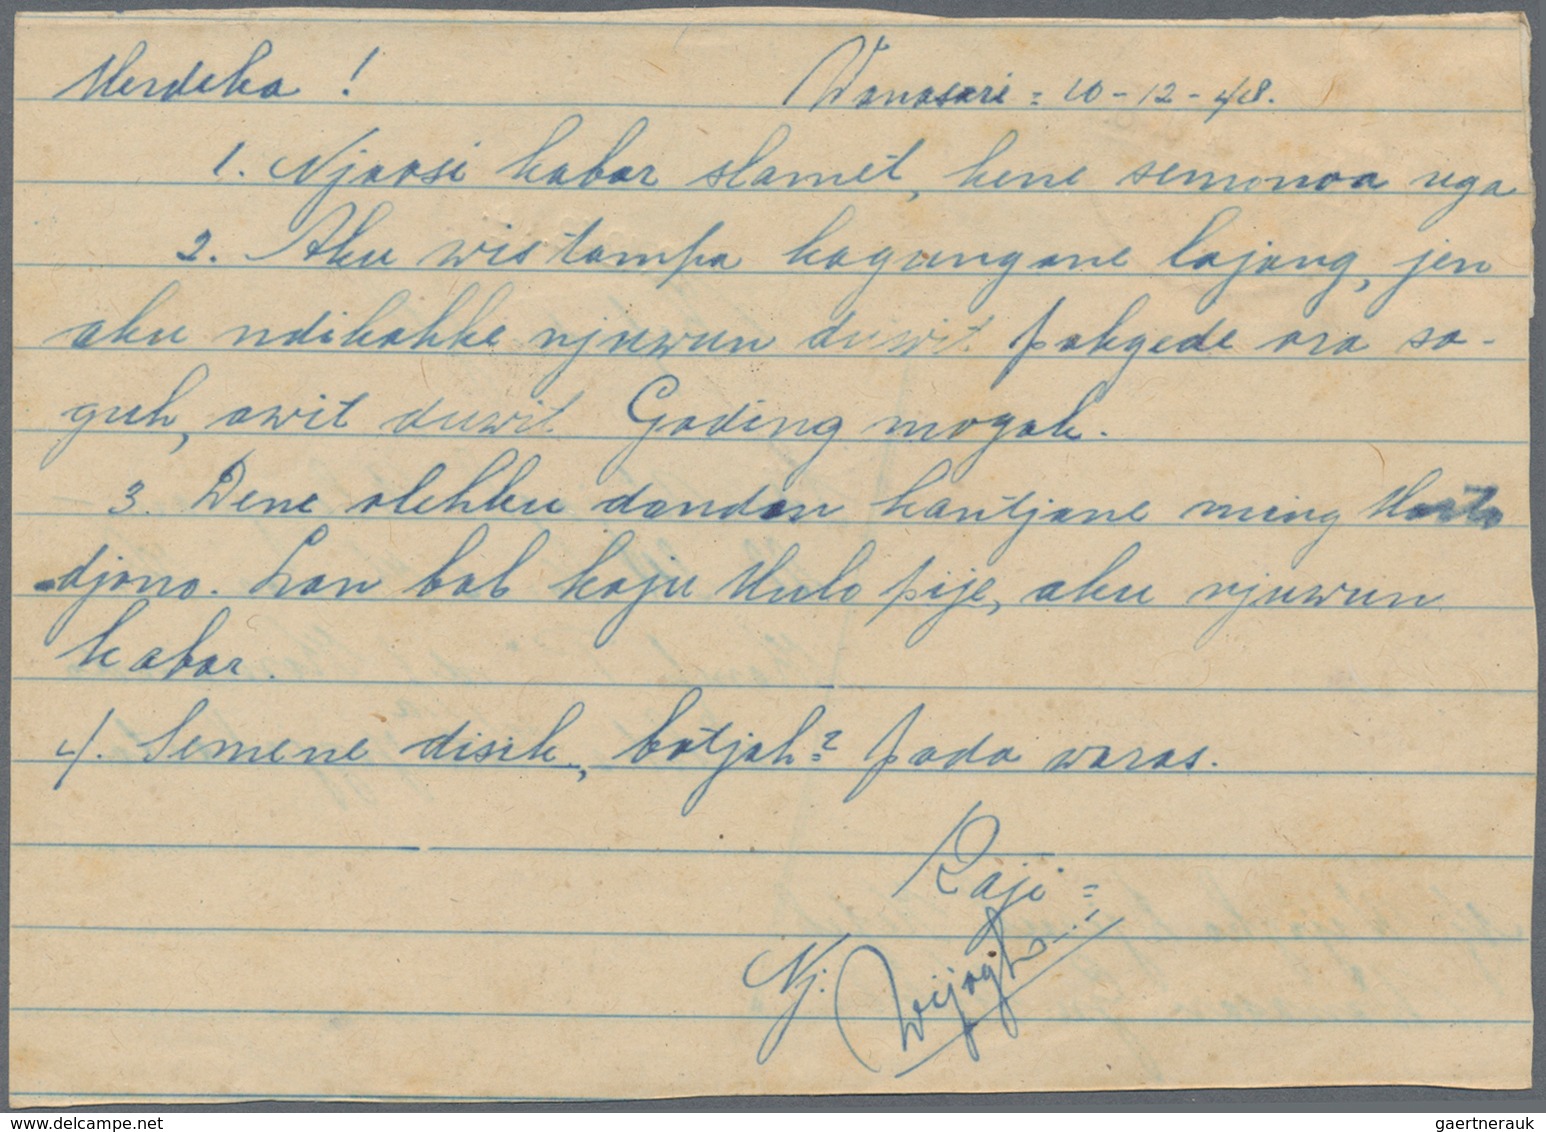 Merdeka !
Wonosari = 10-12-48.
1. Njaosi kabar slamet, kene semonoa uga
2. Aku wis tampa kagungane lajang, jen
aku ndikakke njuwun duwit pakgede ora sa-
guh, awit duwit Gading mogak.
3. Dene olehku dandan kantjane ming
djono. Lan bab kaju Mulo pije, aku njuwun
kabar.
4. Semene disik, botjah² pada waras.
Raji =
Nj.
gaertnerauk @ delcampe.net